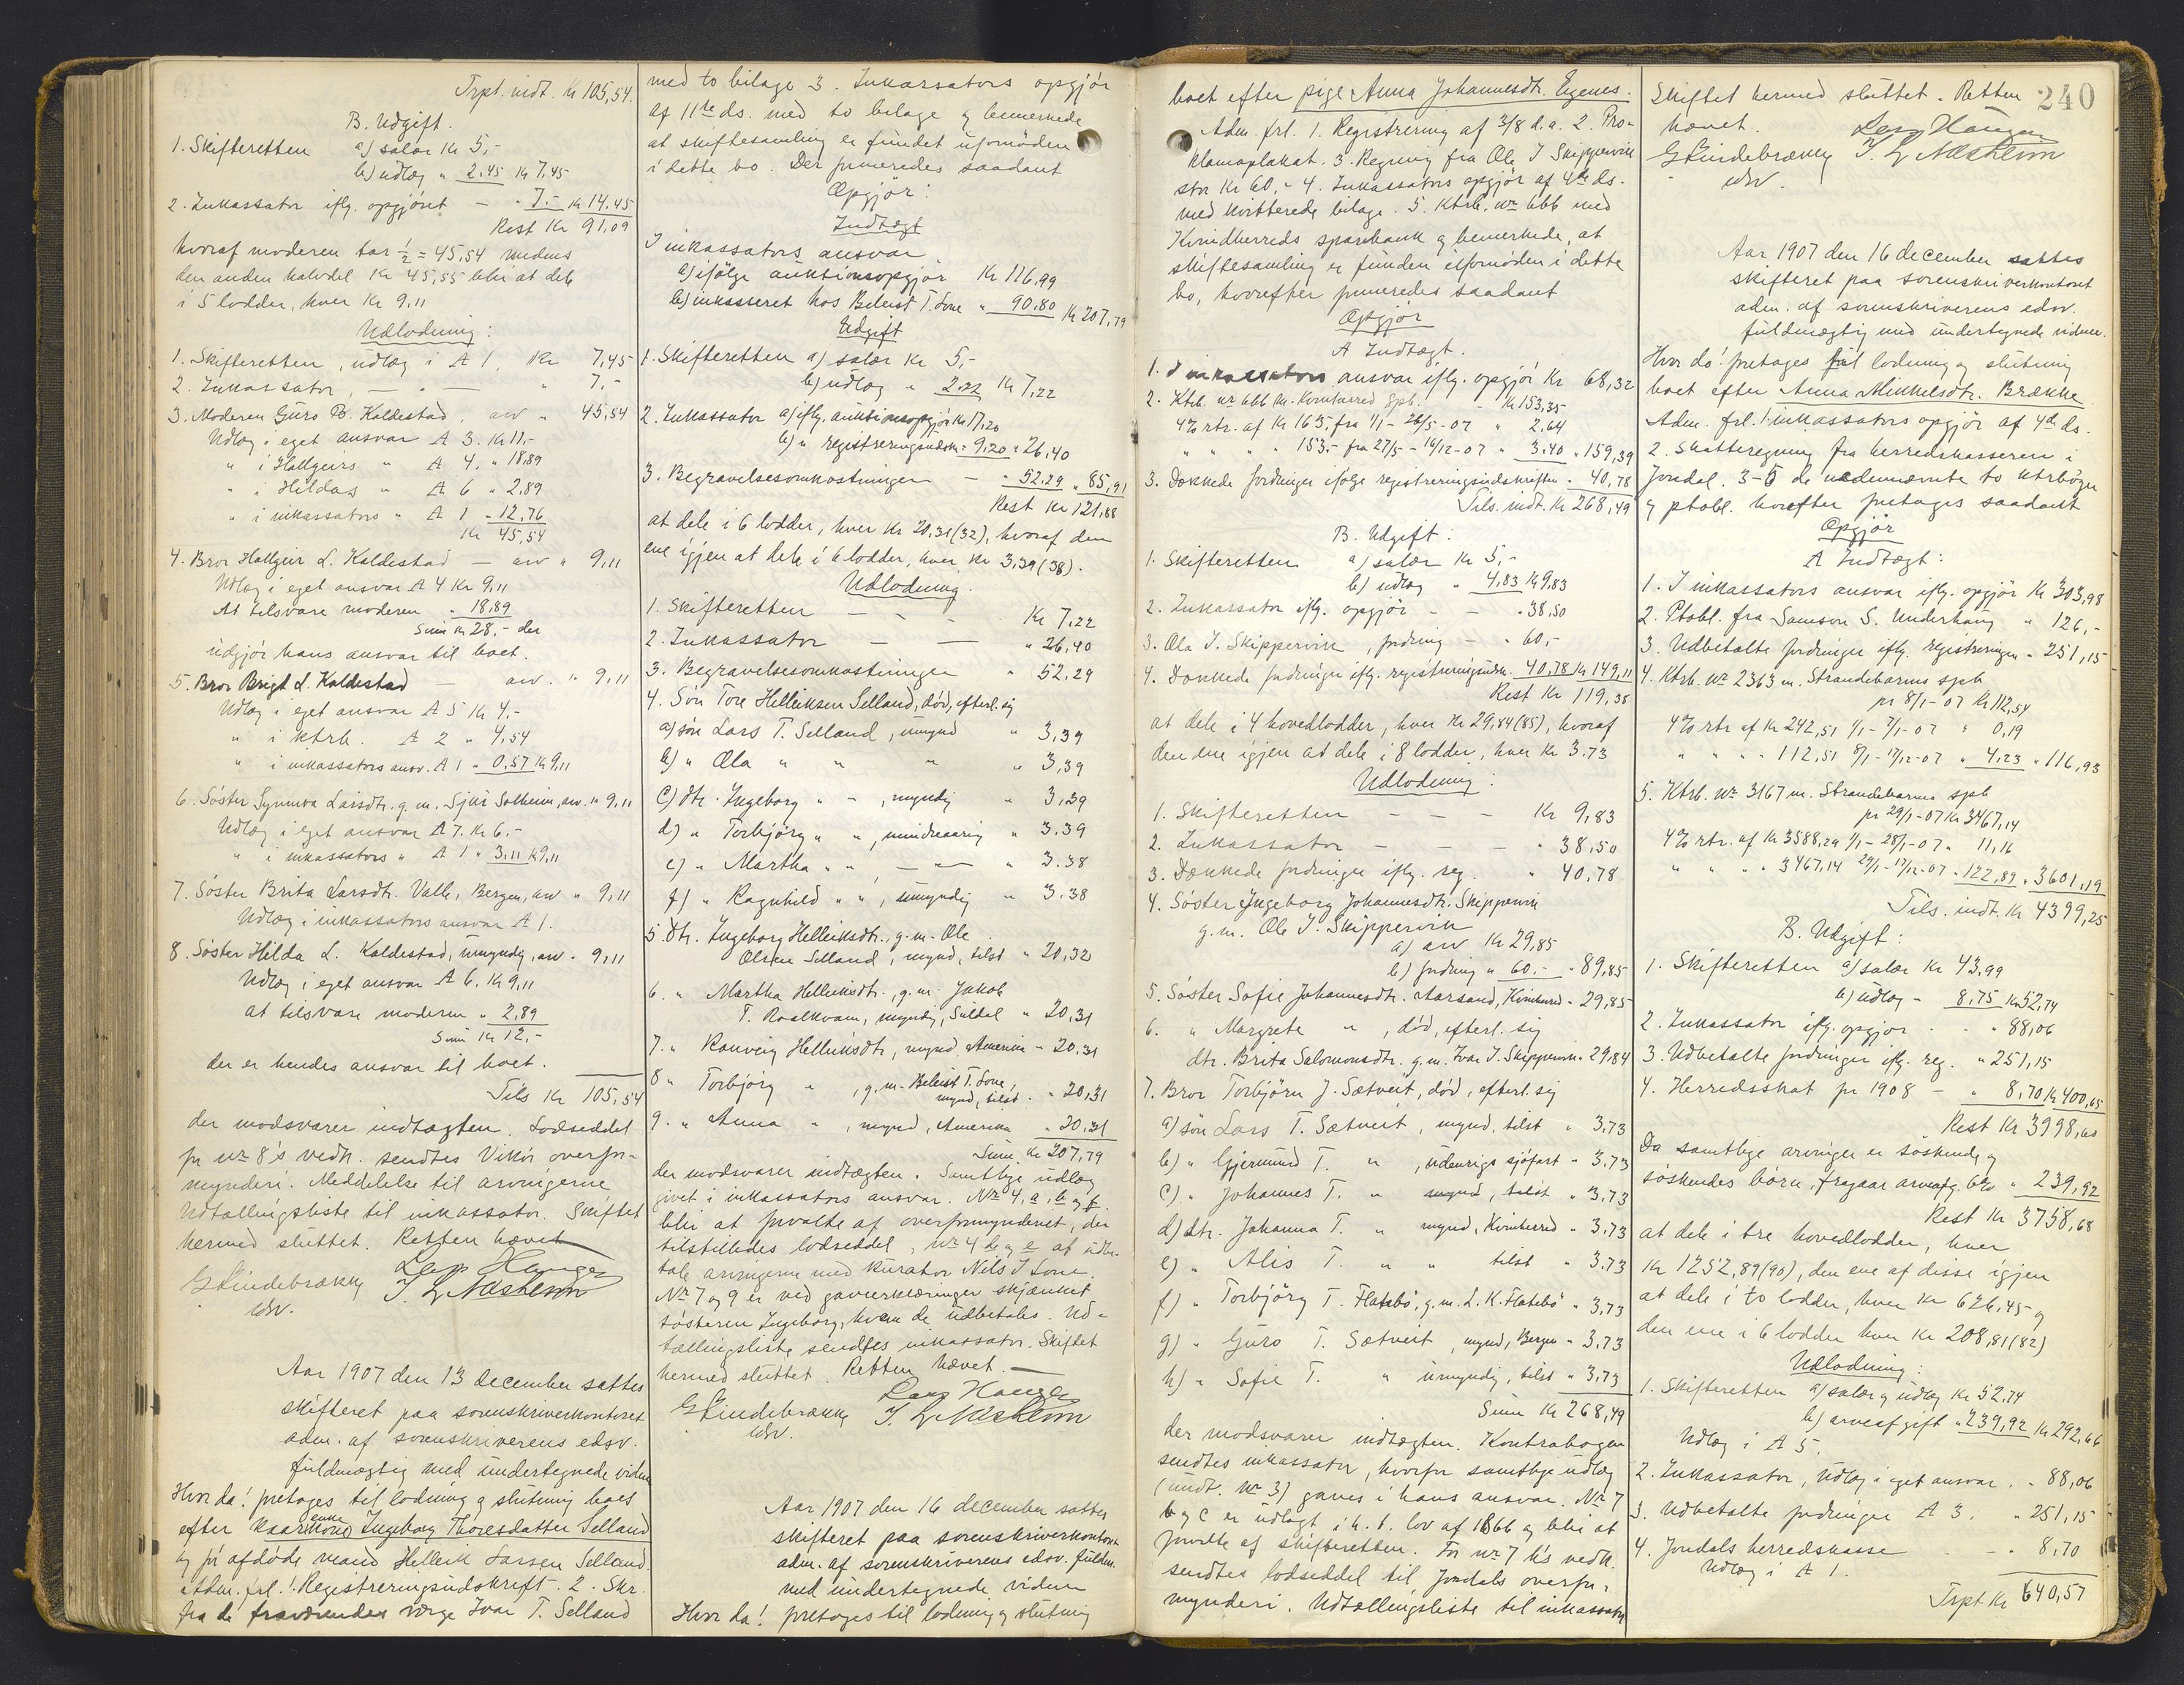 Trpt. indt. Kr 105,54.
B. Udgift.
1. Skifteretten a) salær Kr 5,-
b) udlæg " 2.45 Kr 7,45
2. Inkassator iflg. opgjöret — " 7.- Kr 14.45
Rest Kr 91,09
hvoraf moderen tar ½ = 45,54 medens
den anden halvdel Kr 45,55 blir at dele
i 5 lodder, hver Kr 9,11
Udlodning:
1. Skifteretten, udlæg i A 1. Kr 7,45
2. Inkassator, — " — " 7,-
3. Moderen Guro B. Kaldestad, arv " 45,54
Udlæg i eget ansvar A 3. Kr 11,-
" i Hallgeirs " A 4. " 18,89
" i Hildas " A 6 " 2,89
" i inkassators " A 1 " 12,76
Kr 45,54
4. Bror Hallgeir L. Kaldestad — arv " 9,11
Udlæg i eget ansvar A 4 Kr 9,11
At tilsvare moderen " 18,89
Sum Kr 28,- der
udgjör hans ansvar til boet.
5. Bror Brigt L. Kaldestad — arv. " 9,11
Udlæg i eget ansvar A 5 Kr 4,-
" i ktrb. A 2 " 4,54
" i inkassators ansv. A 1 " 0,57 Kr 9,11
6. Söster Synneva Larsdtr. g. m. Sjur Solheim, arv. " 9,11
Udlæg i eget ansvar A 7. Kr 6,-
" i inkassators " A 1 " 3,11 Kr 9,11
7. Söster Brita Larsdtr. Valle, Bergen, arv " 9,11
Udlæg i inkassators ansvar A 1.
8. Söster Hilda L. Kaldestad, umyndig, arv " 9,11
Udlæg i eget ansvar A 6. Kr 9,11
at tilsvare moderen " 2,89
Sum Kr 12,-
der er hendes ansvar til boet.
Tils Kr 105,54
der modsvarer indtægten. Lodseddel
for nr 8's vedk. sendtes Vikör overfor-
mynderi. Meddelelse til arvingerne
Udtællingsliste til inkassator. Skiftet
hermed sluttet. Retten hævet
Lars Haugen
G Lindebrække J. L. Næsheim
edsv.
Aar 1907 den 13 december sattes
skifteret paa sorenskriverkontoret
adm. af sorenskriverens edsv.
fuldmægtig med undertegnede vidne
Hvor da! foretoges til lodning og slutning boet
efter enke Ingeborg Thoresdatter Selland
og för afdöde mand Helleik Larsen Selland.
Adm. frl. 1. Registreringsudskrift. 2. Skr.
fra de fraværendes værge Ivar T. Selland
med to bilage 3. Inkassators opgjör
af 11te ds. med to bilage og bemerkede
at skiftesamling er fundet ufornöden
i dette bo. Der passeredes saadant
Opgjör:
Indtægt
I inkassators ansvar
a) ifölge auktionsopgjör Kr 116,99
b) inkasseret hos Beleist T. Lone " 90,80 Kr 207,79
Udgift
1. Skifteretten a) salær Kr 5,-
b) udlæg " 2.22 Kr 7,22
2. Inkassator a) iflg. auktionsopgjör Kr 17,20
b) " registreringsudskr " 9,20 " 26,40
3. Begravelsesomkostninger — " 52,29 " 85,91
Rest Kr 121,88
at dele i 6 lodder, hver Kr 20,31(32), hvoraf den
ene igjen at dele i 6 lodder, hver Kr 3,39 (38).
Udlodning.
1. Skifteretten — — - Kr 7,22
2. Inkassator — — " 26,40
3. Begravelsesomkostninger " 52,29
4. Sön Tore Helleiksen Selland, död, efterl. sig
a) sön Lars T. Selland, umynd " 3,39
b) " Ola " " " " 3,39
c) dtr. Ingeborg " ", myndig " 3,39
d) " Torbjörg " ", mindreaarig " 3.39
e) " Martha " ", — " — " 3.38
f) " Ragnhild " ", umyndig " 3.38
5. dtr. Ingeborg Helleiksdtr., g.m. Ole
Olsen Selland, mynd, tilst " 20,32
6. " Martha Helleiksdtr., g.m. Jakob
T. Roalkvam, myndig, Suldal " 20,31
7. " Ranveig Helleiksdtr, mynd, Amerika " 20.31
8 " Torbjörg " , g.m. Beleist T. Lone,
mynd, tilst. " 20,31
9. " Anna " , mynd, Amerika " 20.31
Sum. Kr 207,79
der modsvarer indtægten. Samtlige udlæg
givet i inkassators ansvar. Nr 4, a, b og f.
blir at forvalte af overformynderiet, der
tilstilledes lodseddel, nr 4 d og e at udbe-
tale arvingerne med kurator Nils J Lone.
Nr 7 og 9 er ved gaveerklæringer skjænket
sösteren Ingeborg, hvem de udbetales. Ud-
tællingsliste sendtes inkassator. Skiftet
hermed sluttet. Retten hævet.
Lars Haugen
G Lindebrække J. L. Næsheim
edsv.
Aar 1907 den 16 december sattes
skifteret paa sorenskriverkontoret
adm. af sorenskriverens edsv. fuldm.
med undertegnede vidne
Hvor da! foretoges til lodning og slutning
boet efter pige Anna Johannesdtr. Egenes.
Adm. frl. 1. Registrering af 3/8 d.a. 2. Pro-
klamaplakat. 3. Regning fra Ole J Skippervik
stor Kr 60,- 4. Inkassators opgjör af 4de ds.
med kvitterede bilage. 5. Ktrb. nr 666 med
Kvindherreds sparebank og bemerkede, at
skiftesamling er funden ufornöden i dette
bo, hvorefter passeredes saadant
Opgjör
A Indtægt.
1. I inkassators ansvar iflg. opgjör Kr 68,32
2. Ktrb. nr 666 m. Kvinherred Spb. - Kr 153,35
4% rtr. af Kr 163,- fra 1/1 - 26/5 - 07 " 2,64
" " " " 153.- fra 27/5 - 16/12 - 07 " 3.40 " 159,39
3. Dækkede fordringer ifölge registreringsudskriften " 40,78
Tils. indt. Kr 268,49
B. Udgift:
1. Skifteretten a) salær Kr 5,-
b) udlæg " 4,83 Kr 9,83
2. Inkassator iflg. opgjör — — " 38,50
3. Ola J. Skippervik, fordring — " 60,-
4. Dækkede fordringer iflg. registreringsudskr. 40,78 Kr 149,11
Rest Kr 119,38
at dele i 4 hovedlodder, hver Kr 29,84(85), hvoraf
den ene igjen at dele i 8 lodder, hver Kr 3.73
Udlodning:
1. Skifteretten — — — Kr 9,83
2. Inkassator — — — " 38,50
3. Dækkede fordringer iflg. reg. " 40,78
4. Söster Ingeborg Johannesdtr. Skippervik
g.m. Ole J. Skippervik
a) arv Kr 29,85
b) fordring " 60.- " 89,85
5. Söster Sofie Johannesdtr. Aarsand, Kvinherred " 29,85
6. " Margrete " , död, efterl. sig
dtr. Brita Salomonsdtr. g.m. Ivar J. Skippervik " 29,84
7. Bror Torbjörn J. Sætveit, död, efterl. sig
a) sön Lars T. Sætveit, mynd. tilst " 3,73
b) " Gjermund T. " , udenrigs sjöfart " 3.73
c) " Johannes T. " mynd, tilst " 3,73
d) dtr. Johanna T. " mynd, Kvinherred " 3.73
e) " Alis T. " " tilst " 3.73
f) " Torbjörg T. Flatebö, g.m. L. K. Flatebö " 3,73
g) " Guro T. Sætveit, mynd, Bergen " 3.73
h) " Sofie T. " umyndig, tilst " 3,73
Sum Kr 268,49
der modsvarer indtægten. Kontrabogen
sendtes inkassator, hvorfor samtlige udlæg
(undt. nr 3) gaves i hans ansvar. Nr 7
b og c er udlagt i h. t. lov af 1866 og blir at
forvalte af skifteretten. For nr 7 h's vedk.
sendtes lodseddel til Jondals overfor-
mynderi. Udtællingsliste til inkassator
240
Skiftet hermed sluttet. Retten
hævet. Lars Haugen
G Lindebrække J. L. Næsheim
edsv.
Aar 1907 den 16 december sattes
skifteret paa sorenskriverkontoret
adm. af sorenskriverens edsv.
fuldmægtig med undertegnede vidne.
Hvor da! foretoges til lodning og slutning
boet efter Anna Mikkelsdtr. Brække
Adm. frl. 1. inkassators opgjör af 4de ds.
2. Skatteregning fra herredskasseren i
Jondal. 3-5 de nedennævnte to ktrböger
og ptobl. hvorefter foretoges saadant
Opgjör
A Indtægt:
1. I inkassators ansvar iflg. opgjör Kr 303,98
2. Ptobl. fra Samson S. Underhaug " 126,-
3. Udbetalte fordringer iflg. registreringen " 251,15
4. Ktrb. nr 2363 m. Strandebarms spb
pr 8/1-07 Kr 112,51
4% rtr af Kr 242,51 1/1 - 7/1-07 " 0,19
" " " 112,51 8/1 - 17/12-07 " 4,23 " 116,93
5. Ktrb. nr 3167 m. Strandebarms spb
pr 29/1-07 Kr 3467,14
4% rtr. af Kr 3588,29 1/1 - 28/1-07 " 11,16
" " " 3467,14 29/1 - 17/12-07 " 122,89 " 3601,19
Tils. indt. Kr 4399,25
B. Udgift:
1. Skifteretten a) salær Kr 43,99
b) udlæg " 8,75 Kr 52,74
2. Inkassator iflg. opgjör " 88,06
3. Udbetalte fordringer iflg. reg. " 251,15
4. Herredsskat for 1908 — " 8,70 Kr 400,65
Rest Kr 3998,60
Da samtlige arvinger er söskende og
söskendes börn, fragaar arveafg. 6% " 239,92
Rest Kr 3758,68
at dele i tre hovedlodder, hver
Kr 1252,89(90), den ene af disse igjen
at dele i to lodder, hver Kr 626,45 og
den ene i 6 lodder hver Kr 208,81(82)
Udlodning:
1. Skifteretten a) salær og udlæg Kr 52,74
b) arveafgift " 239,92 Kr 292,66
Udlæg i A 5.
2. Inkassator, udlæg i eget ansvar. " 88,06
3. Udbetalte fordringer A 3. " 251,15
4. Jondals herredskasse — " 8,70
Udlæg i A 1.
Trpt Kr 640,57